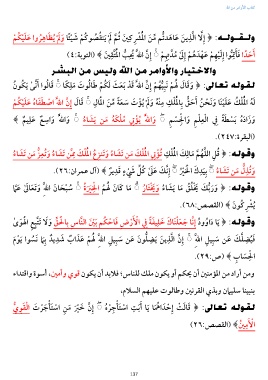 كتاب الأوامر من الله
ولقوله: ﴿ إِلَّا الَّذِينَ عَاهَدتُّم مِّنَ الْمُشْرِكِينَ ثُمَّ لَمْ يَنقُصُوكُمْ شَيْئًا وَلَمْ يُظَاهِرُوا عَلَيْكُمْ
أَحَدًا فَأَتِمُّوا إِلَيْهِمْ عَهْدَهُمْ إِلَىٰ مُدَّتِهِمْ ۚ إِنَّ اللَّهَ يُحِبُّ الْمُتَّقِينَ ﴾ (التوبة:٤)
والاختيار والأوامر من الله وليس من البشر
لقوله تعالى: ﴿ وَقَالَ لَهُمْ نَبِيُّهُمْ إِنَّ اللَّهَ قَدْ بَعَثَ لَكُمْ طَالُوتَ مَلِكًا ۚ قَالُوا أَنَّىٰ يَكُونُ
لَهُ الْمُلْكُ عَلَيْنَا وَنَحْنُ أَحَقُّ بِالْمُلْكِ مِنْهُ وَلَمْ يُؤْتَ سَعَةً مِّنَ الْمَالِ ۚ قَالَ إِنَّ اللَّهَ اصْطَفَاهُ عَلَيْكُمْ
وَزَادَهُ بَسْطَةً فِي الْعِلْمِ وَالْجِسْمِ ۖ وَاللَّهُ يُؤْتِي مُلْكَهُ مَن يَشَاءُ ۚ وَاللَّهُ وَاسِعٌ عَلِيمٌ ﴾
(البقرة:٢٤٧)
وقوله: ﴿ قُلِ اللَّهُمَّ مَالِكَ الْمُلْكِ تُؤْتِي الْمُلْكَ مَن تَشَاءُ وَتَنزِعُ الْمُلْكَ مِمَّن تَشَاءُ وَتُعِزُّ مَن تَشَاءُ
وَتُذِلُّ مَن تَشَاءُ ۖ بِيَدِكَ الْخَيْرُ ۖ إِنَّكَ عَلَىٰ كُلِّ شَيْءٍ قَدِيرٌ ﴾ (آل عمران:٢٦)
وقوله: ﴿ وَرَبُّكَ يَخْلُقُ مَا يَشَاءُ وَيَخْتَارُ ۗ مَا كَانَ لَهُمُ الْخِيَرَةُ ۚ سُبْحَانَ اللَّهِ وَتَعَالَىٰ عَمَّا
يُشْرِكُونَ ﴾ (القصص:٦٨)
وقوله: ﴿ يَا دَاوُودُ إِنَّا جَعَلْنَاكَ خَلِيفَةً فِي الْأَرْضِ فَاحْكُم بَيْنَ النَّاسِ بِالْحَقِّ وَلَا تَتَّبِعِ الْهَوَىٰ
فَيُضِلَّكَ عَن سَبِيلِ اللَّهِ ۚ إِنَّ الَّذِينَ يَضِلُّونَ عَن سَبِيلِ اللَّهِ لَهُمْ عَذَابٌ شَدِيدٌ بِمَا نَسُوا يَوْمَ
الْحِسَابِ ﴾ (ص:٢٦)
ومن أراد من المؤمنين أن يحكم أو يكون ملك للناس؛ فلابد أن يكون قوي وأمين، أسوة واقتداء
بنبينا سليمان وبذي القرنين وطالوت عليهم السلام،
لقوله تعالى: ﴿ قَالَتْ إِحْدَاهُمَا يَا أَبَتِ اسْتَأْجِرْهُ ۖ إِنَّ خَيْرَ مَنِ اسْتَأْجَرْتَ الْقَوِيُّ
الْأَمِينُ ﴾ (القصص:٢٦)
137